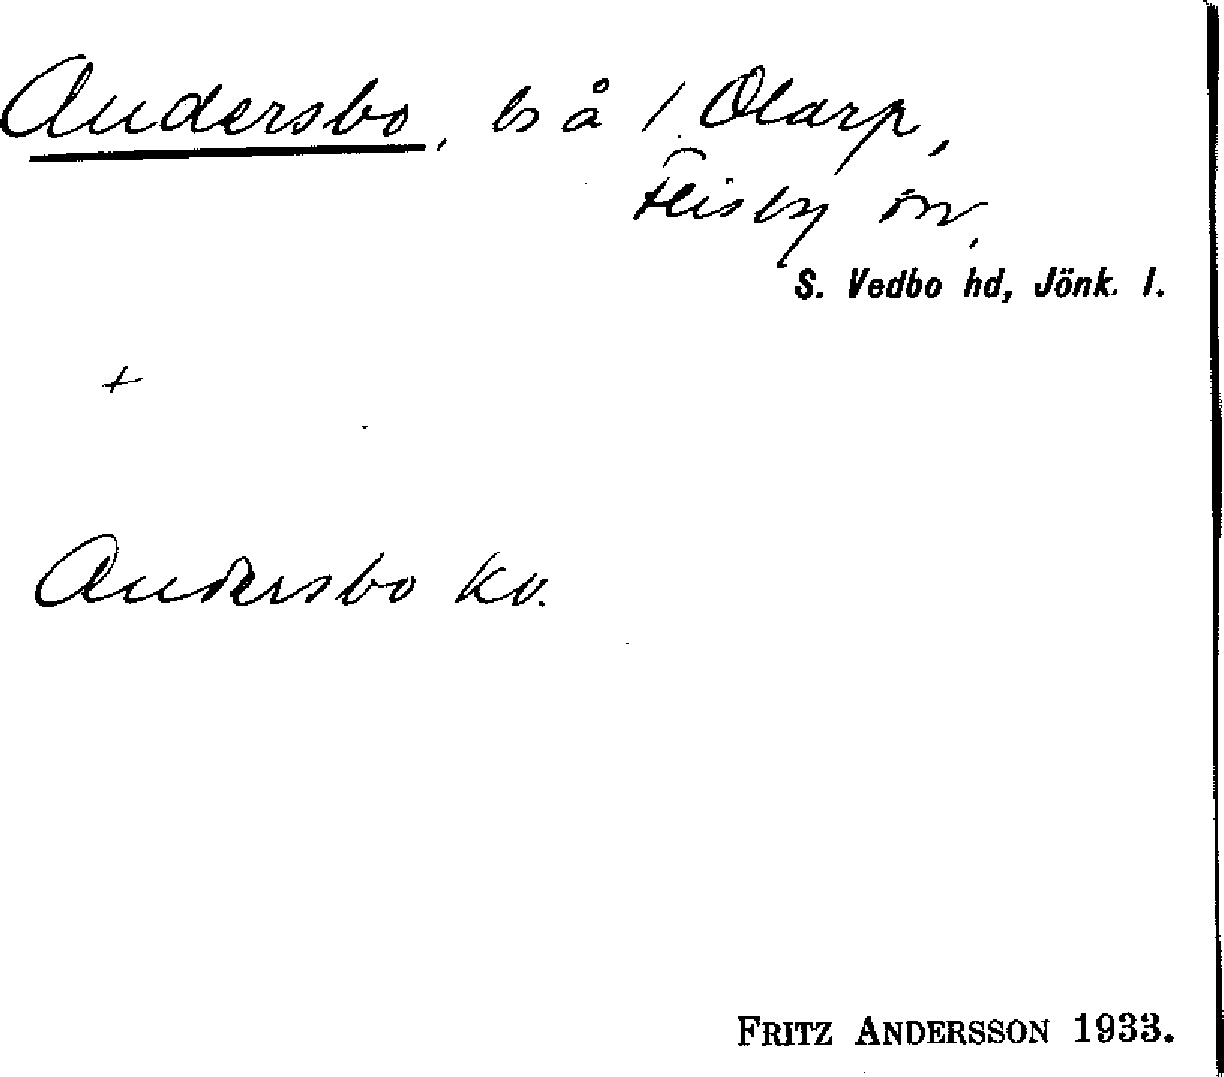 Andersbo, ls å 1 Olarp,
Flisby sn,
S. Vedbo hd, Jönk. l.
+
Andersbo kv.
FRITZ ANDERSSON 1933.